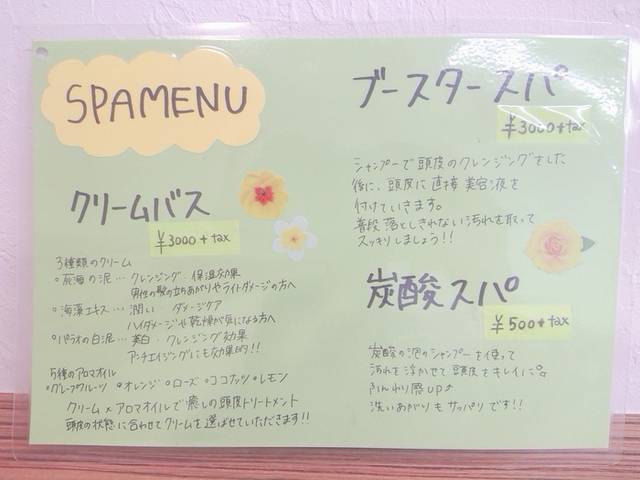 SPAMENU
クリームバス
¥3000+tax
3種類のクリーム
•死海の泥…クレンジング・保温効果
男性の髪の立ちあがりやライトダメージの方へ
•海藻エキス…潤い・ダメージケア
ハイダメージや乾燥が気になる方へ
•パラオの白泥…美白・クレンジング効果
アンチエイジングにも効果的!!
5種のアロマオイル
•グレープフルーツ •オレンジ •ローズ •ココナッツ •レモン
クリーム×アロマオイルで癒しの頭皮トリートメント
頭皮の状態に合わせてクリームを選ばせていただきます!!
ブースタースパ
¥3000+tax
シャンプーで頭皮のクレンジングをした
後に、頭皮に直接美容液を
付けていきます。
普段落としきれない汚れを取って
スッキリしましょう!!
炭酸スパ
¥500+tax
炭酸の泡のシャンプーを使って
汚れを浮かせて頭皮をキレイに。
ふんわり感up♪
洗いあがりもサッパリです!!